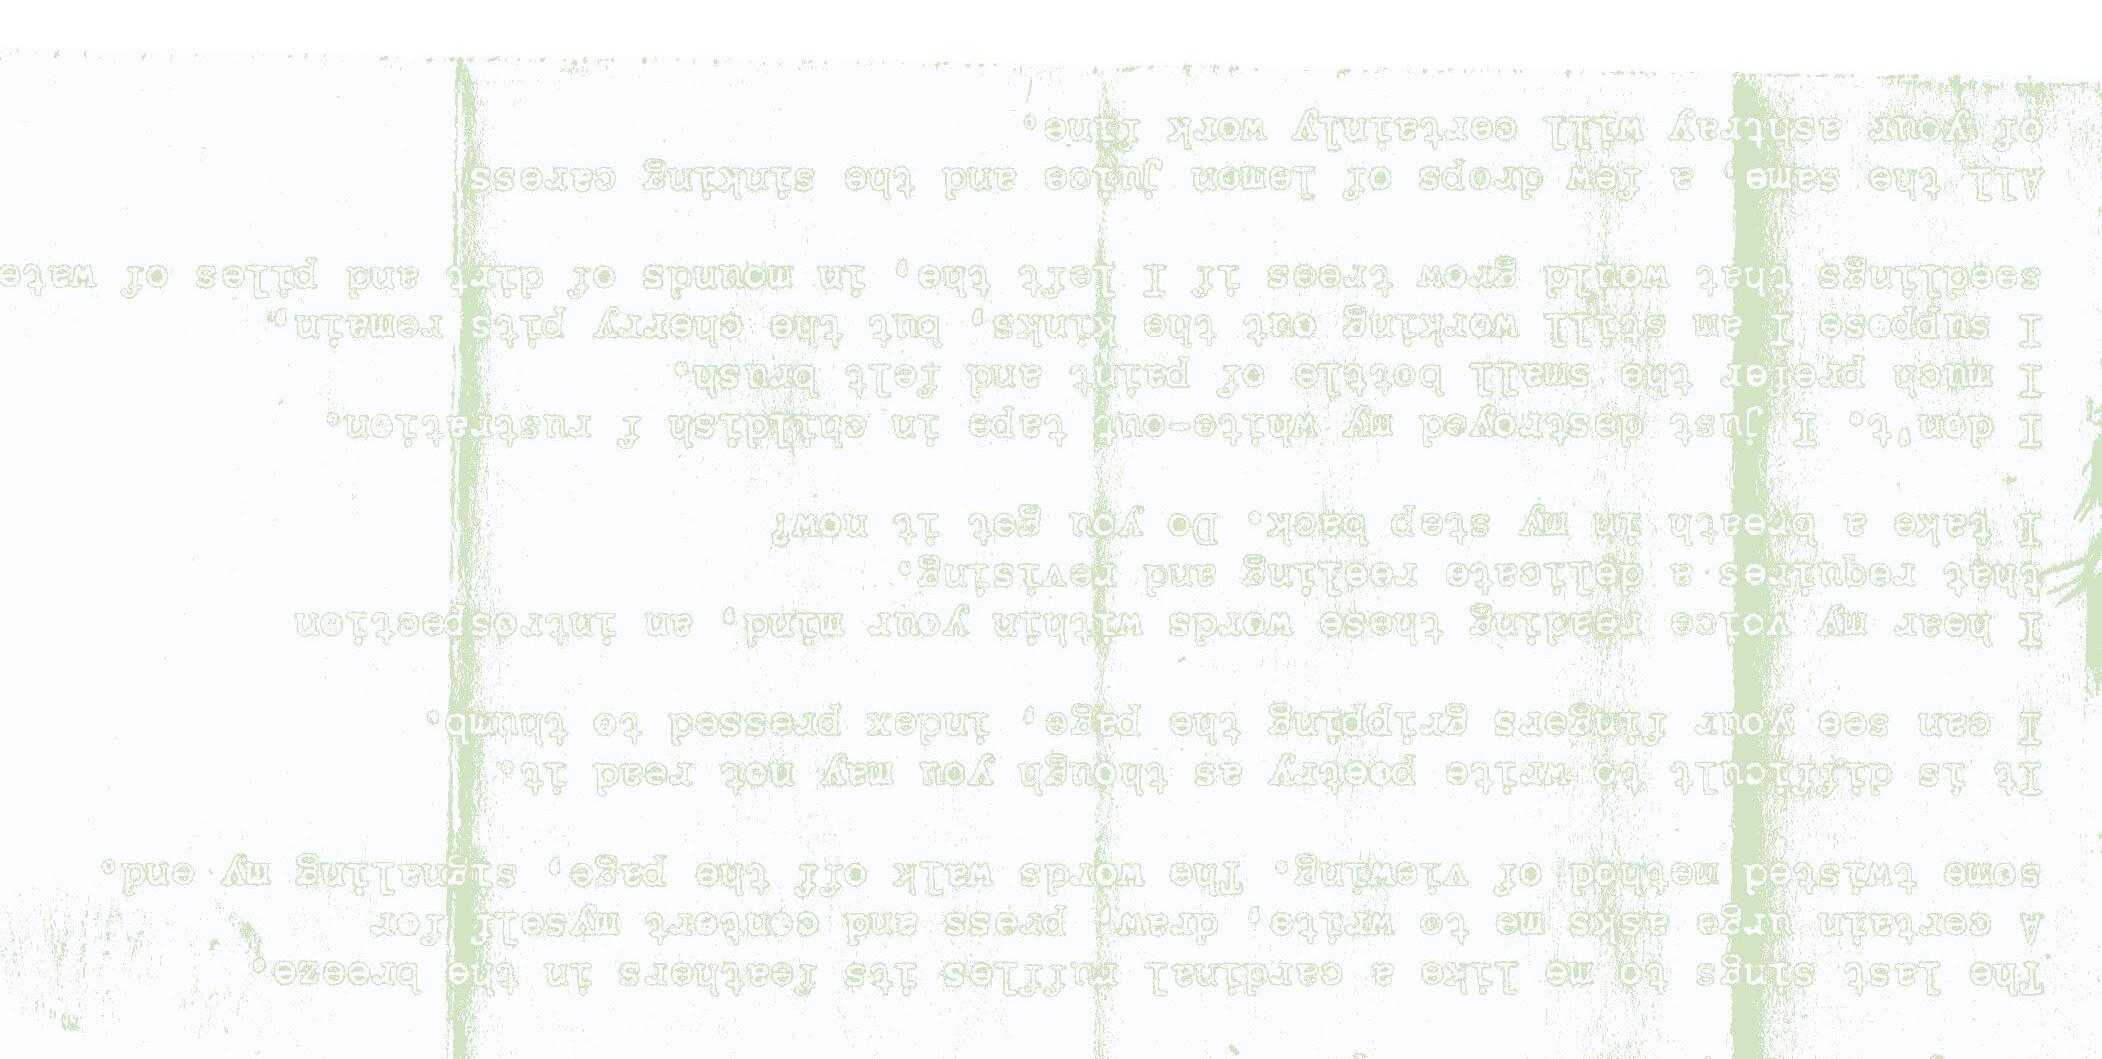 The last sings to me like a cardinal ruffles its feathers in the breeze.
A certain urge asks me to write, draw, press and contort myself for
some twisted method of viewing. The words walk off the page, signaling my end.
It is difficult to write poetry as though you may not read it.
I can see your fingers gripping the page, index pressed to thumb.
I hear my voice reading these words within your mind, an introspection
that requires a delicate reeling and revising.
I take a breath in my step back. Do you get it now?
I don't. I just destroyed my white-out tape in childish f rustration.
I much prefer the small bottle of paint and felt brush.
I suppose I am still working out the kinks, but the cherry pits remain,
seedlings that would grow trees if I left the, in mounds of dirt and piles of wate
All the same, a few drops of lemon juice and the sinking caress
of your ashtray will certainly work fine.